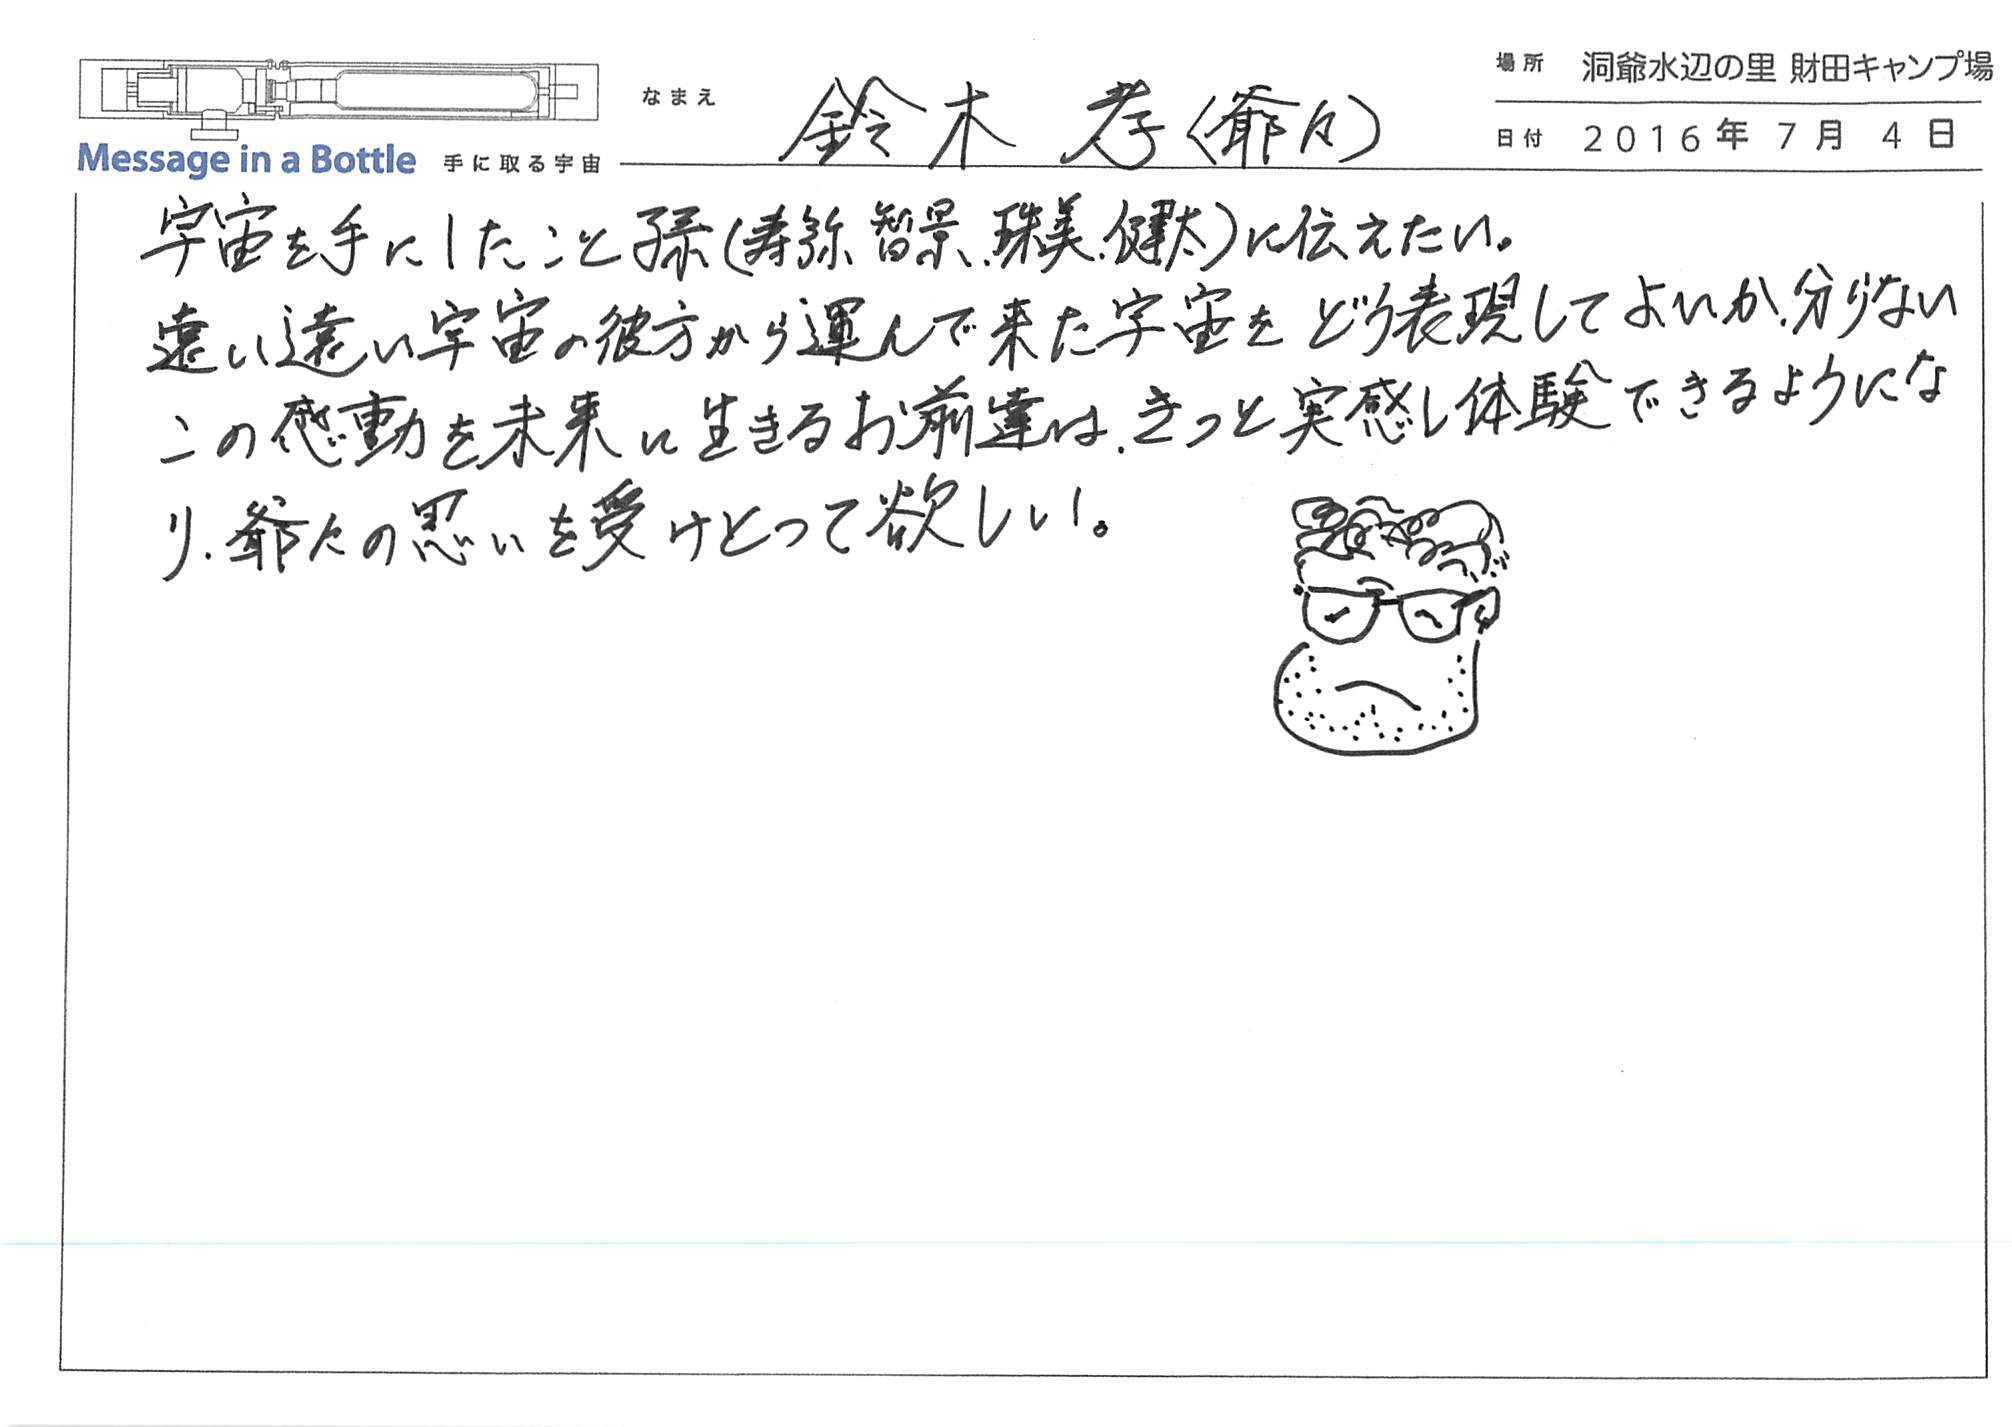 場所 洞爺水辺の里 財田キャンプ場
なまえ 鈴木 孝(爺々)
日付 2016年 7月 4日
Message in a Bottle 手に取る宇宙
宇宙を手にしたこと孫(寿弥、智景、珠美、健太)に伝えたい。
遠い遠い宇宙の彼方から運んで来た宇宙をどう表現してよいか、分らない
この感動を未来に生きるお前達は、きっと実感し体験できるようにな
り、爺々の思いを受けとって欲しい。